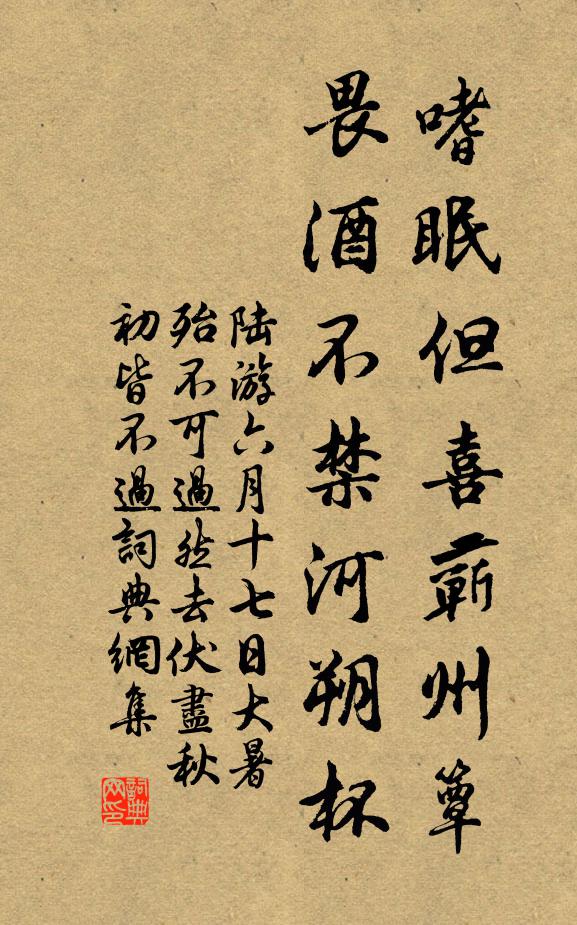 嗜眠但喜蘄州簟
畏酒不禁河朔杯
陆游六月十七日大暑
殆不可過然去伏盡秋
初皆不過詞典網集
詞典
网印